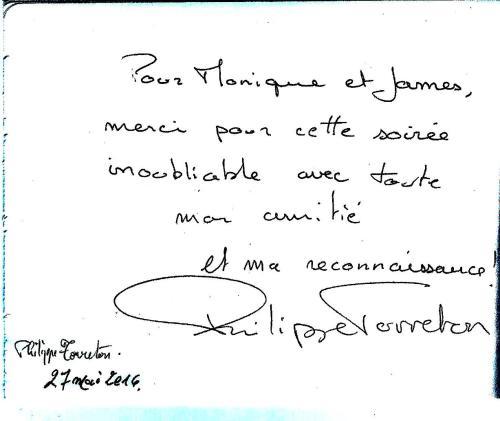 Pour Monique et James,
merci pour cette soirée
inoubliable avec toute
mon amitié
et ma reconnaissance!
Philippe Torreton
Philippe Torreton.
27 mai 2016.